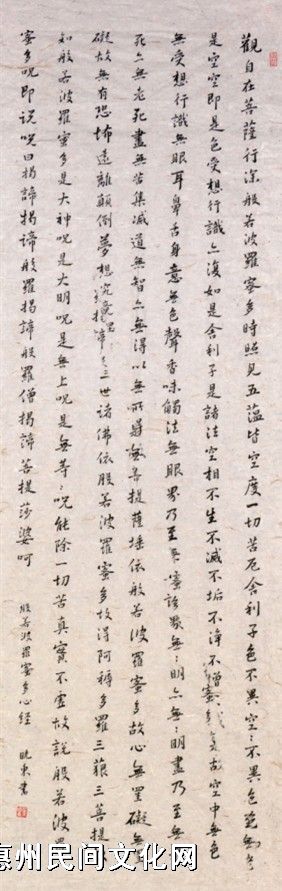 觀自在菩薩行深般若波羅蜜多時照見五蘊皆空度一切苦厄舍利子色不異空〻不異色
是空空即是色受想行識亦復如是舍利子是諸法空相不生不滅不垢不淨不增空中無色
無受想行識無眼耳鼻舌身意無色聲香味觸法無眼界乃至無〻明亦無〻明盡乃至無
死亦無老死盡無苦集滅道無智亦無得以無所得故菩提薩埵依般若波羅蜜多故心無罣礙無罣
礙故無有恐怖遠離顛倒夢想究竟三世諸佛依般若波羅蜜多故得阿耨多羅三藐三菩提
如般若波羅蜜多是大神咒是大明咒是無上咒是無等〻咒能除一切苦真實不虛故說般若波羅
蜜多咒即說咒曰揭諦揭諦般羅揭諦般羅僧揭諦菩提莎婆呵
般若波羅蜜多心經
曉東書
惠州民间文化网